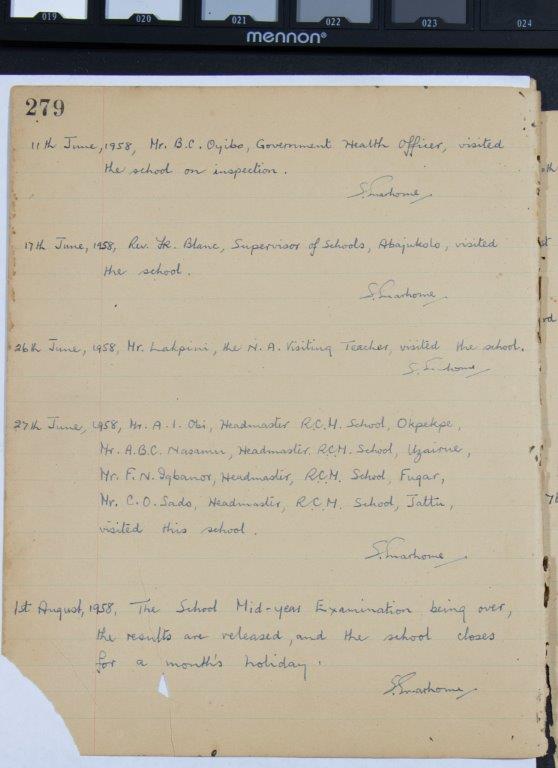 019 020 021 022 023 024
mennon®
279
11th June, 1958, Mr. B.C. Oyibo, Government Health Officer, visited
the school on inspection.
17th June, 1958, Rev. Fr. Blanc, Supervisor of Schools, Abajukolo, visited
the school.
26th June, 1958, Mr. Lakpini, the N.A. Visiting Teacher, visited the school.
27th June, 1958, Mr. A. I. Obi, Headmaster R.C.M. School, Okpekpe,
Mr. A.B.C. Nasamu, Headmaster R.C.M. School, Uzairue,
Mr. F. N. Igbanor, Headmaster, R.C.M. School, Fugar,
Mr. C. O. Sado, Headmaster, R.C.M. School, Jattu,
visited this school.
1st August, 1958, The School Mid-year Examination being over,
the results are released, and the school closes
for a month's holiday.